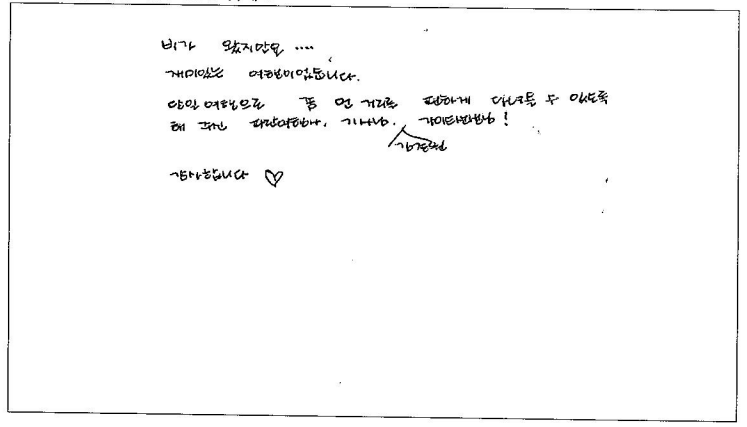 비가 왔지만요 ....
재미있는 여행이었습니다.
당일 여행으로 좀 먼 거리를 편하게 다녀올 수 있도록
해 주신 파란여행사, 기사님, 가이드분님!
감사합니다 ♡